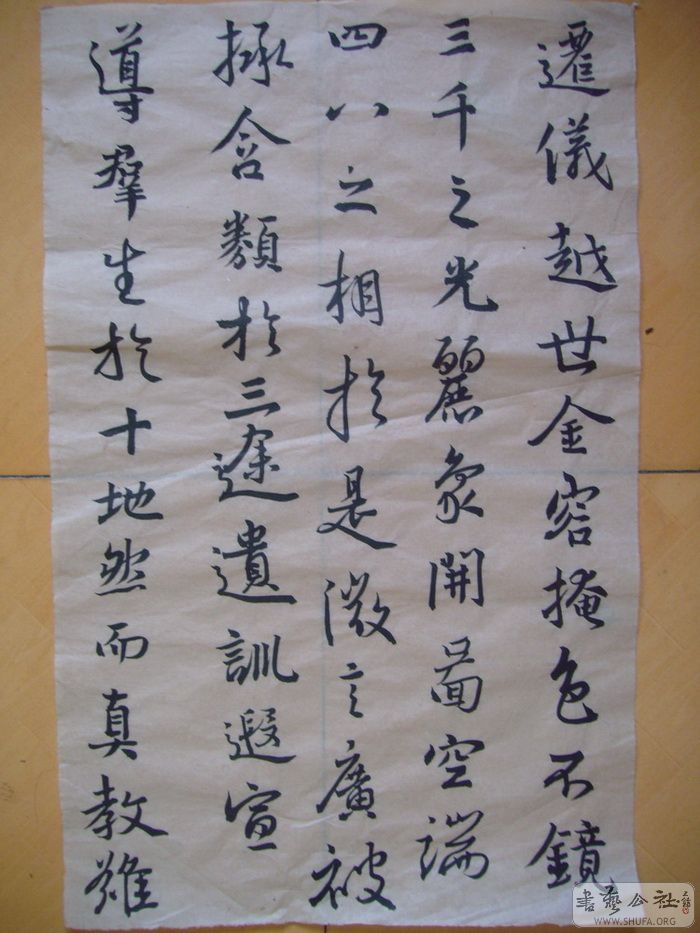 遷儀越世金容掩色不鏡
三千之光麗象開啚空端
四八之相於是微言廣被
拯含類於三途遺訓遐宣
導群生於十地然而真教難
書藝公社
WWW.SHUFA.ORG